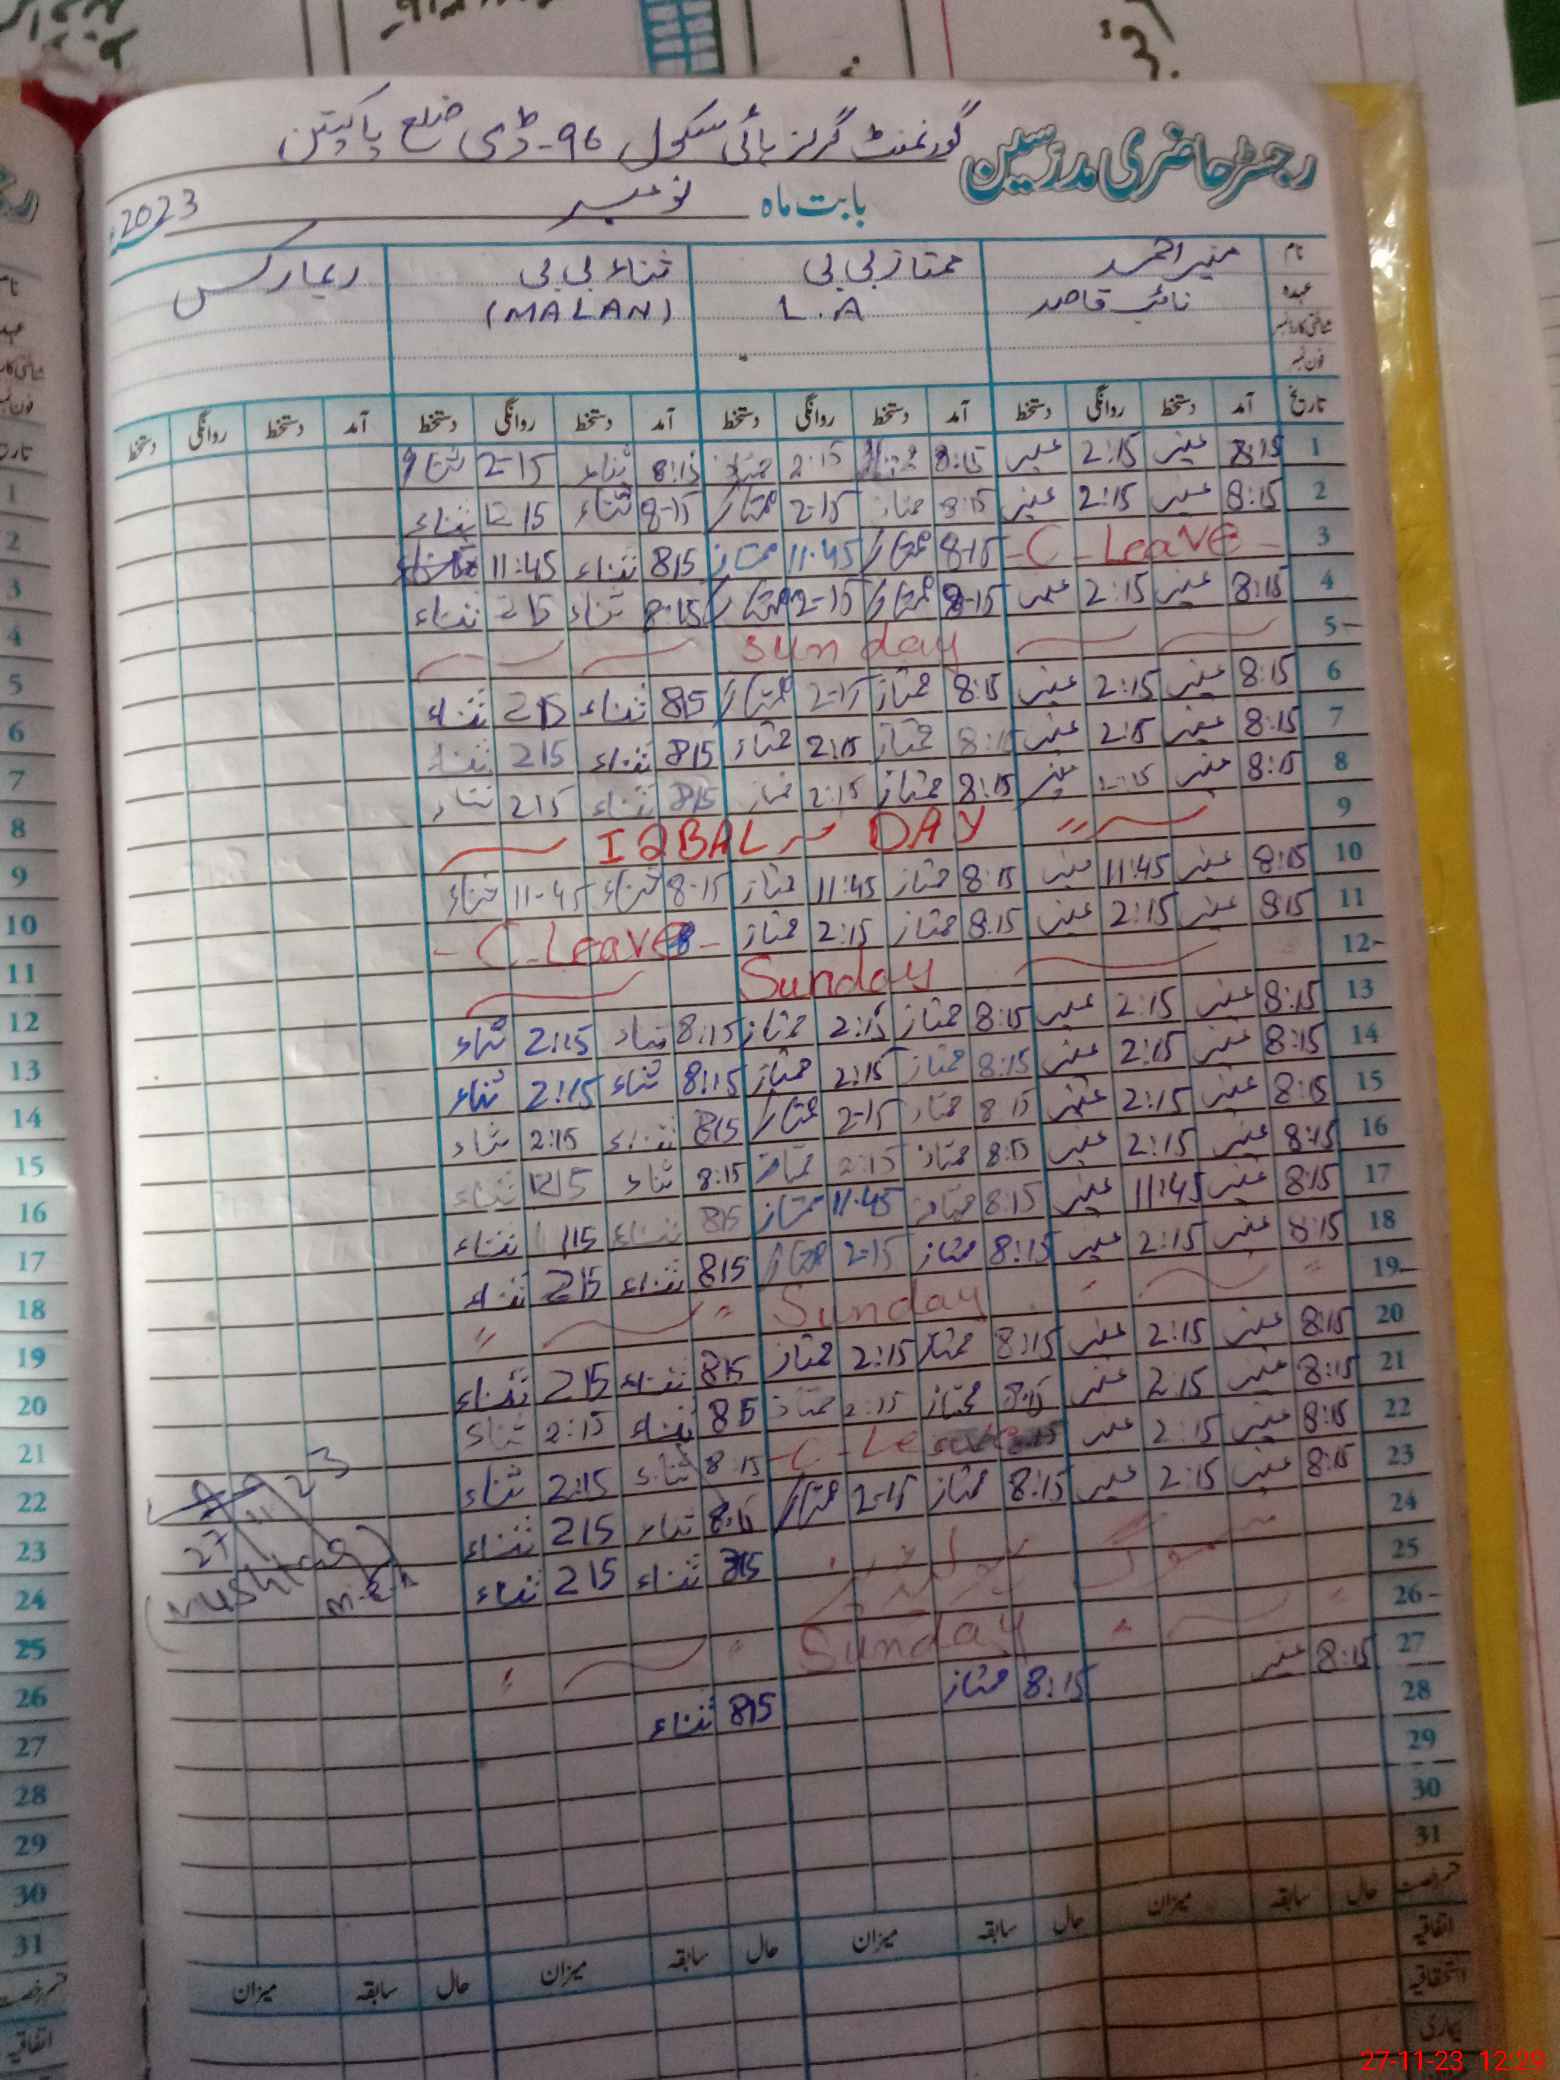 رجسٹر حاضری مدرسین گورنمنٹ گرلز ہائی سکول 96-ڈی ضلع پاکپتن
بابت ماہ نومبر 2023ء
نام منیر احمد ممتاز بی بی ثناء بی بی ریمارکس
عہدہ نائب قاصد L.A (MALAN)
شناختی کارڈ نمبر
فون نمبر
تاریخ آمد دستخط روانگی دستخط آمد دستخط روانگی دستخط آمد دستخط روانگی دستخط آمد دستخط روانگی دستخط
1 8:15 منیر 2:15 منیر 8:15 ممتاز 2:15 ممتاز 8:15 ثناء 2-15 ثناء
2 8:15 منیر 2:15 منیر 8:15 ممتاز 2-15 ممتاز 8-15 ثناء 215 ثناء
3 - C - Leave - 8-15 ممتاز 11.45 ممتاز 815 ثناء 11:45 ثناء
4 8:15 منیر 2:15 منیر 8-15 ممتاز 2-15 ممتاز 8:15 ثناء 215 ثناء
5- sunday
6 8:15 منیر 2:15 منیر 8:15 ممتاز 2-15 ممتاز 815 ثناء 215 ثناء
7 8:15 منیر 2:15 منیر 8:15 ممتاز 2:15 ممتاز 815 ثناء 215 ثناء
8 8:15 منیر 2:15 منیر 8:15 ممتاز 2:15 ممتاز 815 ثناء 215 ثناء
9 IQBAL DAY
10 8:15 منیر 11:45 منیر 8:15 ممتاز 11:45 ممتاز 8-15 ثناء 11-45 ثناء
11 8:15 منیر 2:15 منیر 8:15 ممتاز 2:15 ممتاز - C - Leave -
12- Sunday
13 8:15 منیر 2:15 منیر 8:15 ممتاز 2:15 ممتاز 8:15 ثناء 2:15 ثناء
14 8:15 منیر 2:15 منیر 8:15 ممتاز 2:15 ممتاز 8:15 ثناء 2:15 ثناء
15 8:15 منیر 2:15 منیر 8 15 ممتاز 2-15 ممتاز 815 ثناء 2:15 ثناء
16 8:15 منیر 2:15 منیر 8:15 ممتاز 2:15 ممتاز 8:15 ثناء 1215 ثناء
17 8:15 منیر 11:45 منیر 8:15 ممتاز 11.45 ممتاز 815 ثناء 115 ثناء
18 8:15 منیر 2:15 منیر 8:15 ممتاز 2-15 ممتاز 815 ثناء 215 ثناء
19- Sunday
20 8:15 منیر 2:15 منیر 8:15 ممتاز 2:15 ممتاز 815 ثناء 215 ثناء
21 8:15 منیر 2:15 منیر 8:15 ممتاز 2:15 ممتاز 815 ثناء 2:15 ثناء
22 8:15 منیر 2:15 منیر - C - Leave 8:15 ثناء 2:15 ثناء
23 8:15 منیر 2:15 منیر 8:15 ممتاز 2-15 ممتاز 8:15 ثناء 215 ثناء
24 815 ثناء 215 ثناء
25
26- Sunday
27 8:15 منیر 8:15 ممتاز 815 ثناء
28
29
30
31
27 11 23
mushtaq
قسم رخصت حال سابقہ میزان حال سابقہ میزان حال سابقہ میزان حال سابقہ میزان
اتفاقیہ
استحقاقیہ
بیماری
27-11-23 12:29